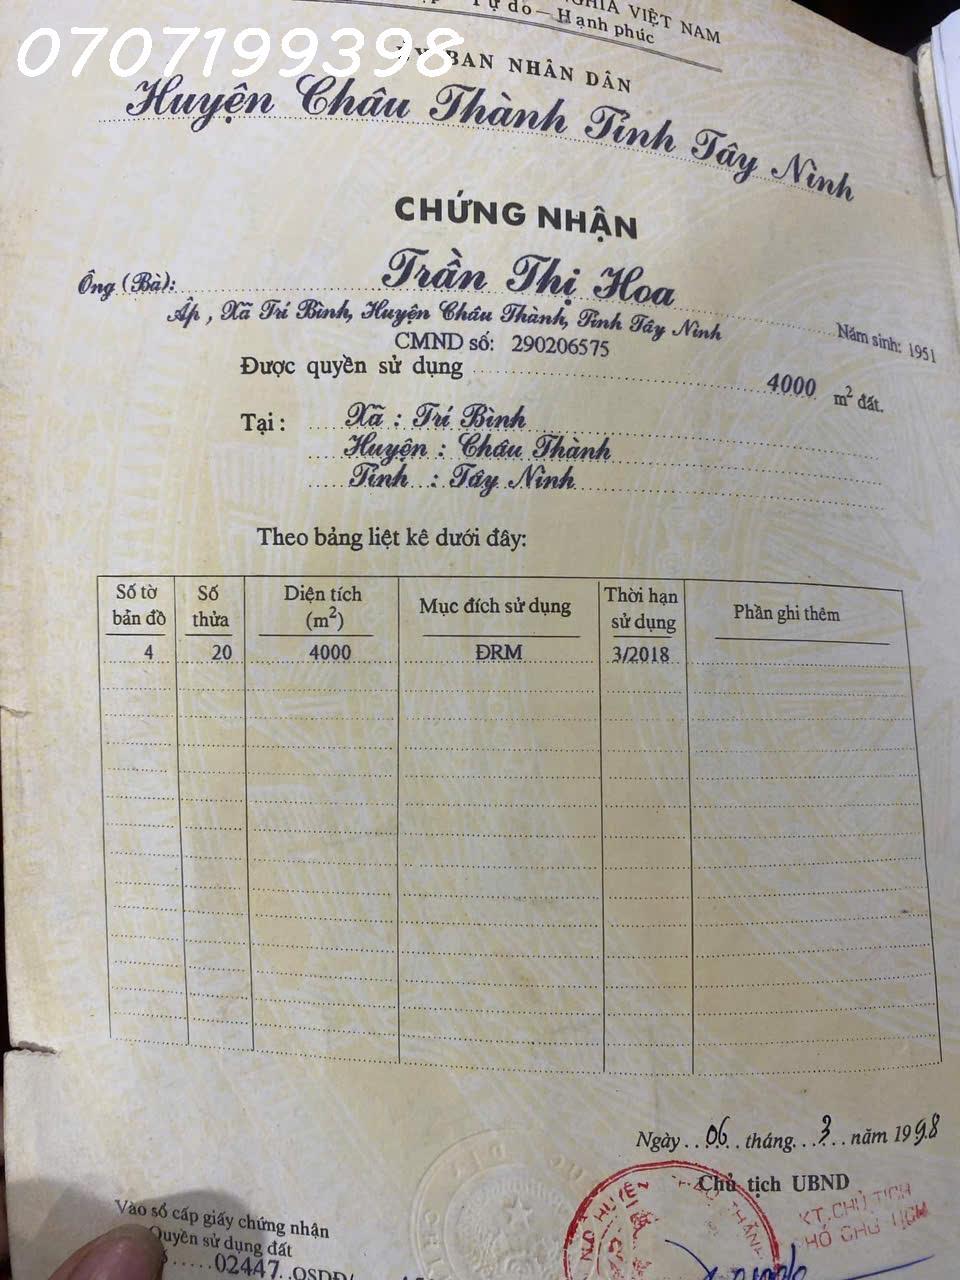 NGHĨA VIỆT NAM
Tự do – Hạnh phúc
0707199398
ỦY BAN NHÂN DÂN
Huyện Châu Thành Tỉnh Tây Ninh
CHỨNG NHẬN
Ông (Bà): Trần Thị Hoa
Năm sinh: 1951
Ấp , Xã Trí Bình, Huyện Châu Thành, Tỉnh Tây Ninh
CMND số: 290206575
Được quyền sử dụng 4000 m² đất.
Tại : Xã : Trí Bình
Huyện : Châu Thành
Tỉnh : Tây Ninh
Theo bảng liệt kê dưới đây:
Số tờ bản đồ Số thửa Diện tích (m²) Mục đích sử dụng Thời hạn sử dụng Phần ghi thêm
4 20 4000 ĐRM 3/2018
Ngày 06 tháng 3 năm 1998
Chủ tịch UBND
KT. CHỦ TỊCH
PHÓ CHỦ TỊCH
Vào sổ cấp giấy chứng nhận
Quyền sử dụng đất
02447 QSDĐ/